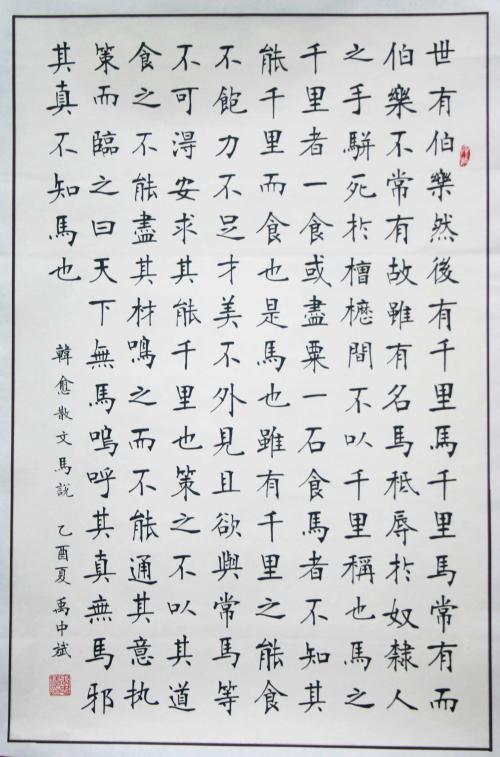 世有伯樂然後有千里馬千里馬常有而
伯樂不常有故雖有名馬秪辱於奴隸人
之手駢死於槽櫪間不以千里稱也馬之
千里者一食或盡粟一石食馬者不知其
能千里而食也是馬也雖有千里之能食
不飽力不足才美不外見且欲與常馬等
不可得安求其能千里也策之不以其道
食之不能盡其材鳴之而不能通其意执
策而臨之曰天下無馬嗚呼其真無馬邪
其真不知馬也
韓愈散文馬説 乙酉夏 禹中斌